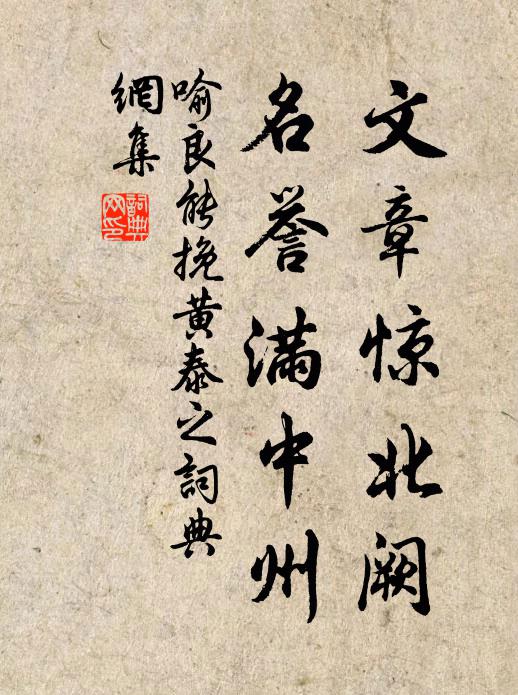 文章惊北阙
名誉满中州
喻良能挽黄泰之詞典
網集
詞典網印